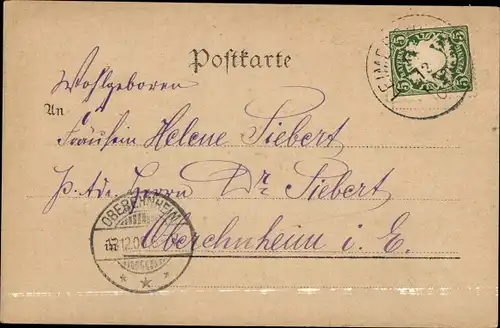 Postkarte
Wohlgeboren
An
Fräulein Helene Siebert
p. Adr. Herrn Dr. Siebert
Oberehnheim i. E.
OBEREHNHEIM
5 5
5 5